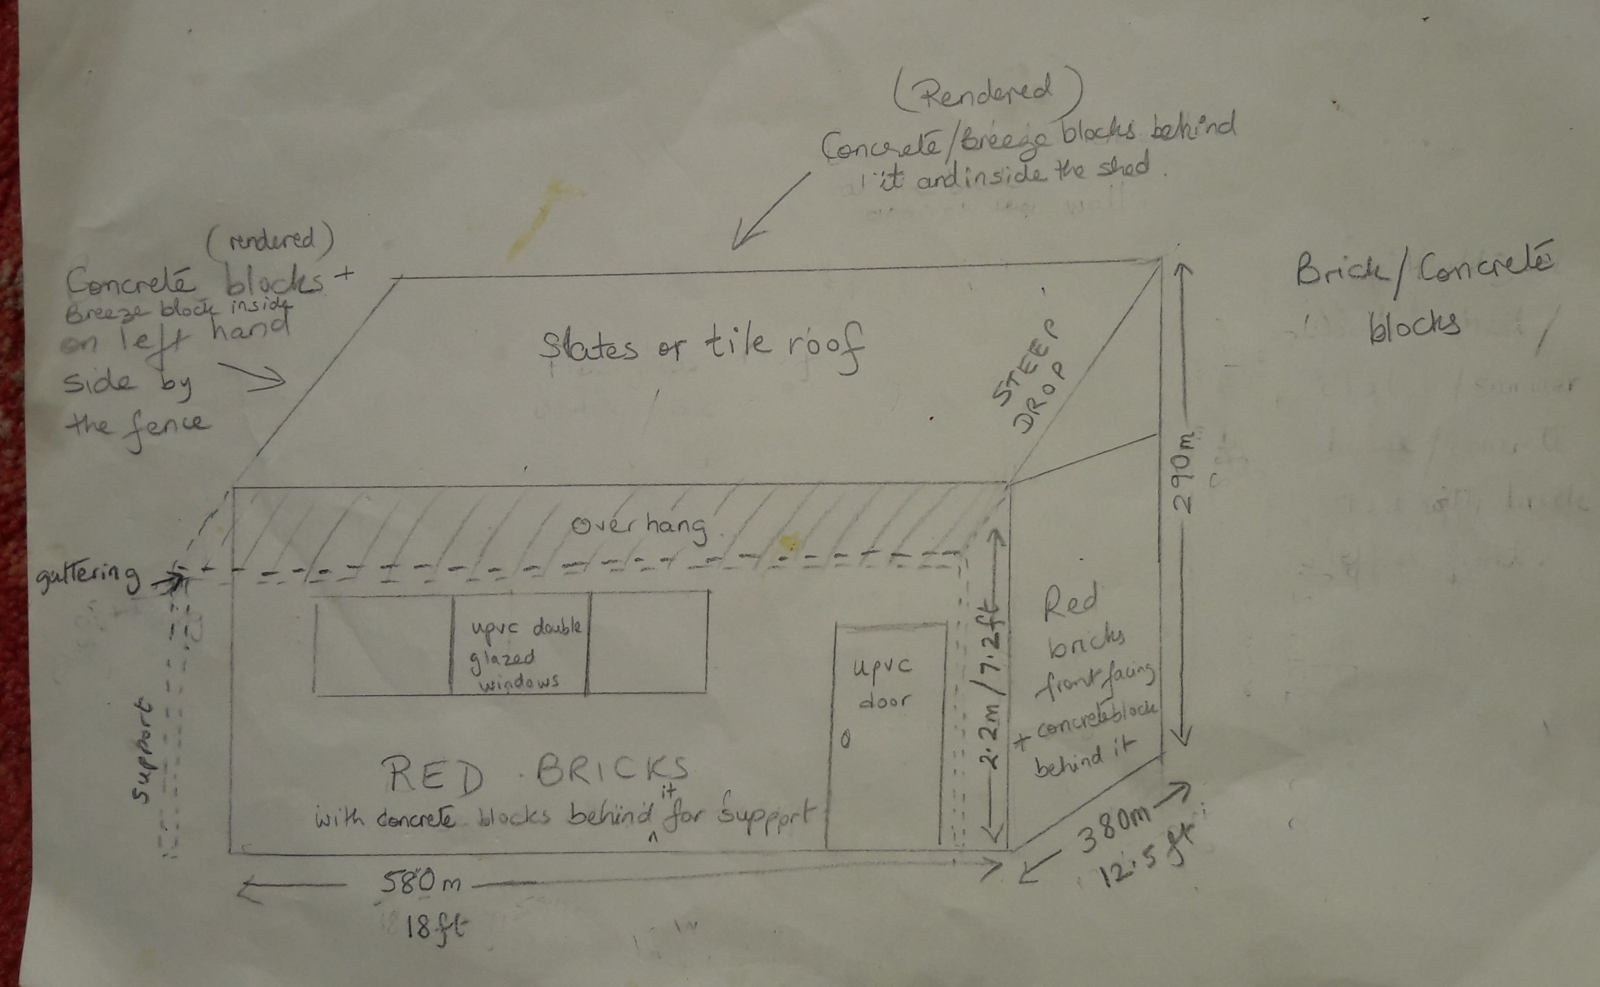 (Rendered)
Concrete/Breeze blocks behind
it and inside the shed.
(rendered)
Concrete blocks +
Breeze block inside
on left hand
side by
the fence
Brick/Concrete
blocks
Slates or tile roof
STEEP
DROP
290m
overhang
guttering
upvc double
glazed
windows
upvc
door
Support
2.2m/7.2ft
Red
bricks
front facing
+ concrete block
behind it
RED BRICKS
with concrete blocks behind it for support
580m
18ft
380m
12.5ft